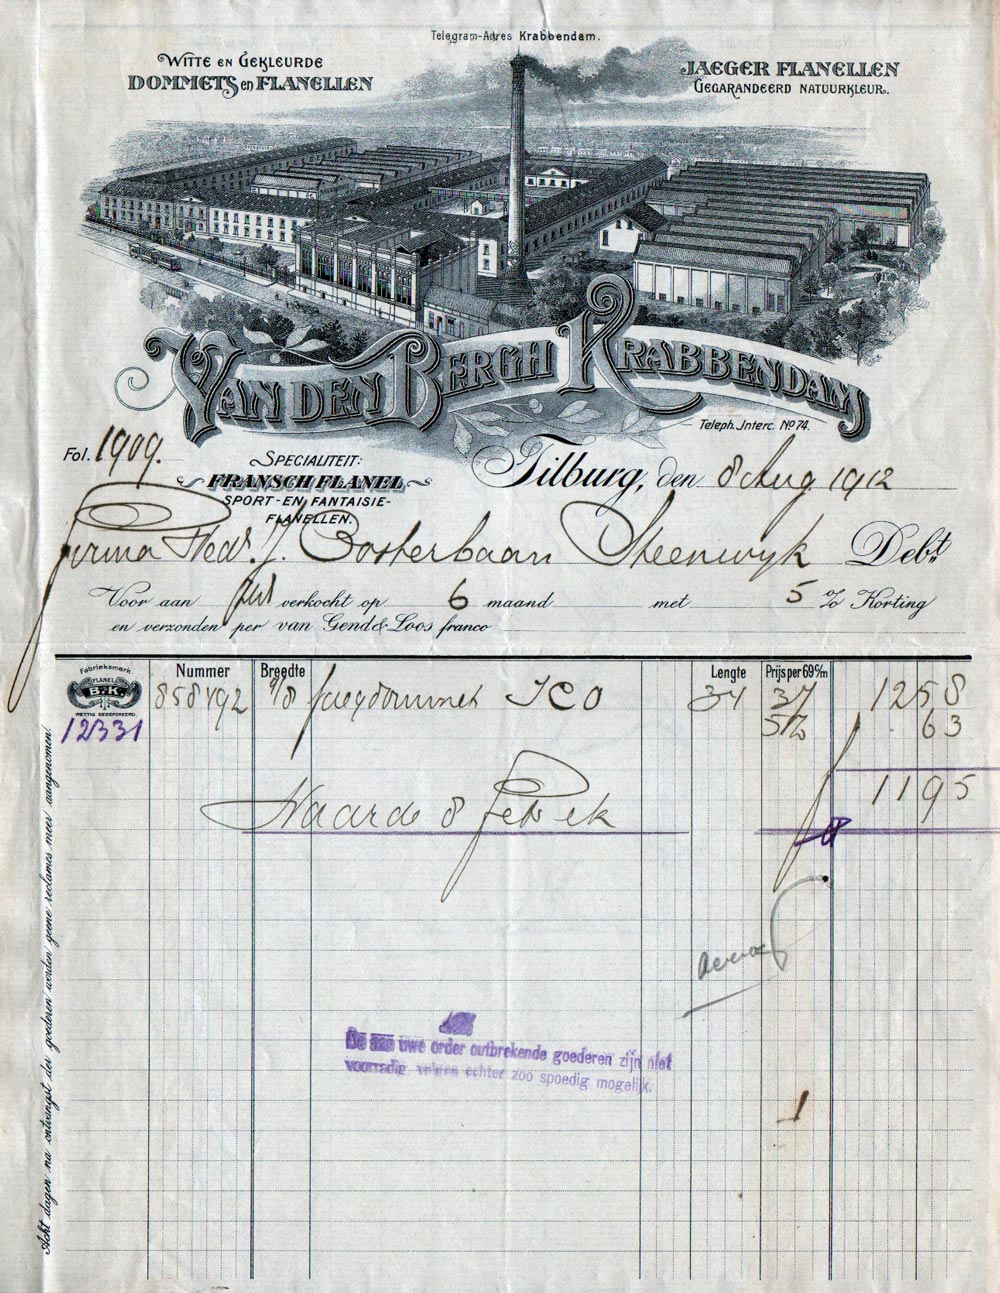 Telegram-Adres Krabbendam.
Witte en Gekleurde
Dommets en Flanellen
Jaeger Flanellen
Gegarandeerd natuurkleur.
Van den Bergh Krabbendam
Teleph. Interc. No 74.
Fol. 1909.
Specialiteit:
Fransch Flanel
Sport- en Fantaisie-
Flanellen.
Tilburg, den 8 Aug 1912
Firma Wed. J. Oosterbaan Steenwyk Debt.
Voor aan verkocht op 6 maand met 5 % Korting
en verzonden per van Gend & Loos franco
Fabrieksmerk
Flanel
B.K.
Wettig gedeponeerd.
Nummer Breedte Lengte Prijs per 69 c/m
858492 8/8 Jaegdommet ICO 34 37 1258
12331 5% 63
1195
Acht dagen na ontvangst der goederen worden geene reclames meer aangenomen.
De aan uwe order ontbrekende goederen zijn niet
voorradig, volgen echter zoo spoedig mogelijk.
1